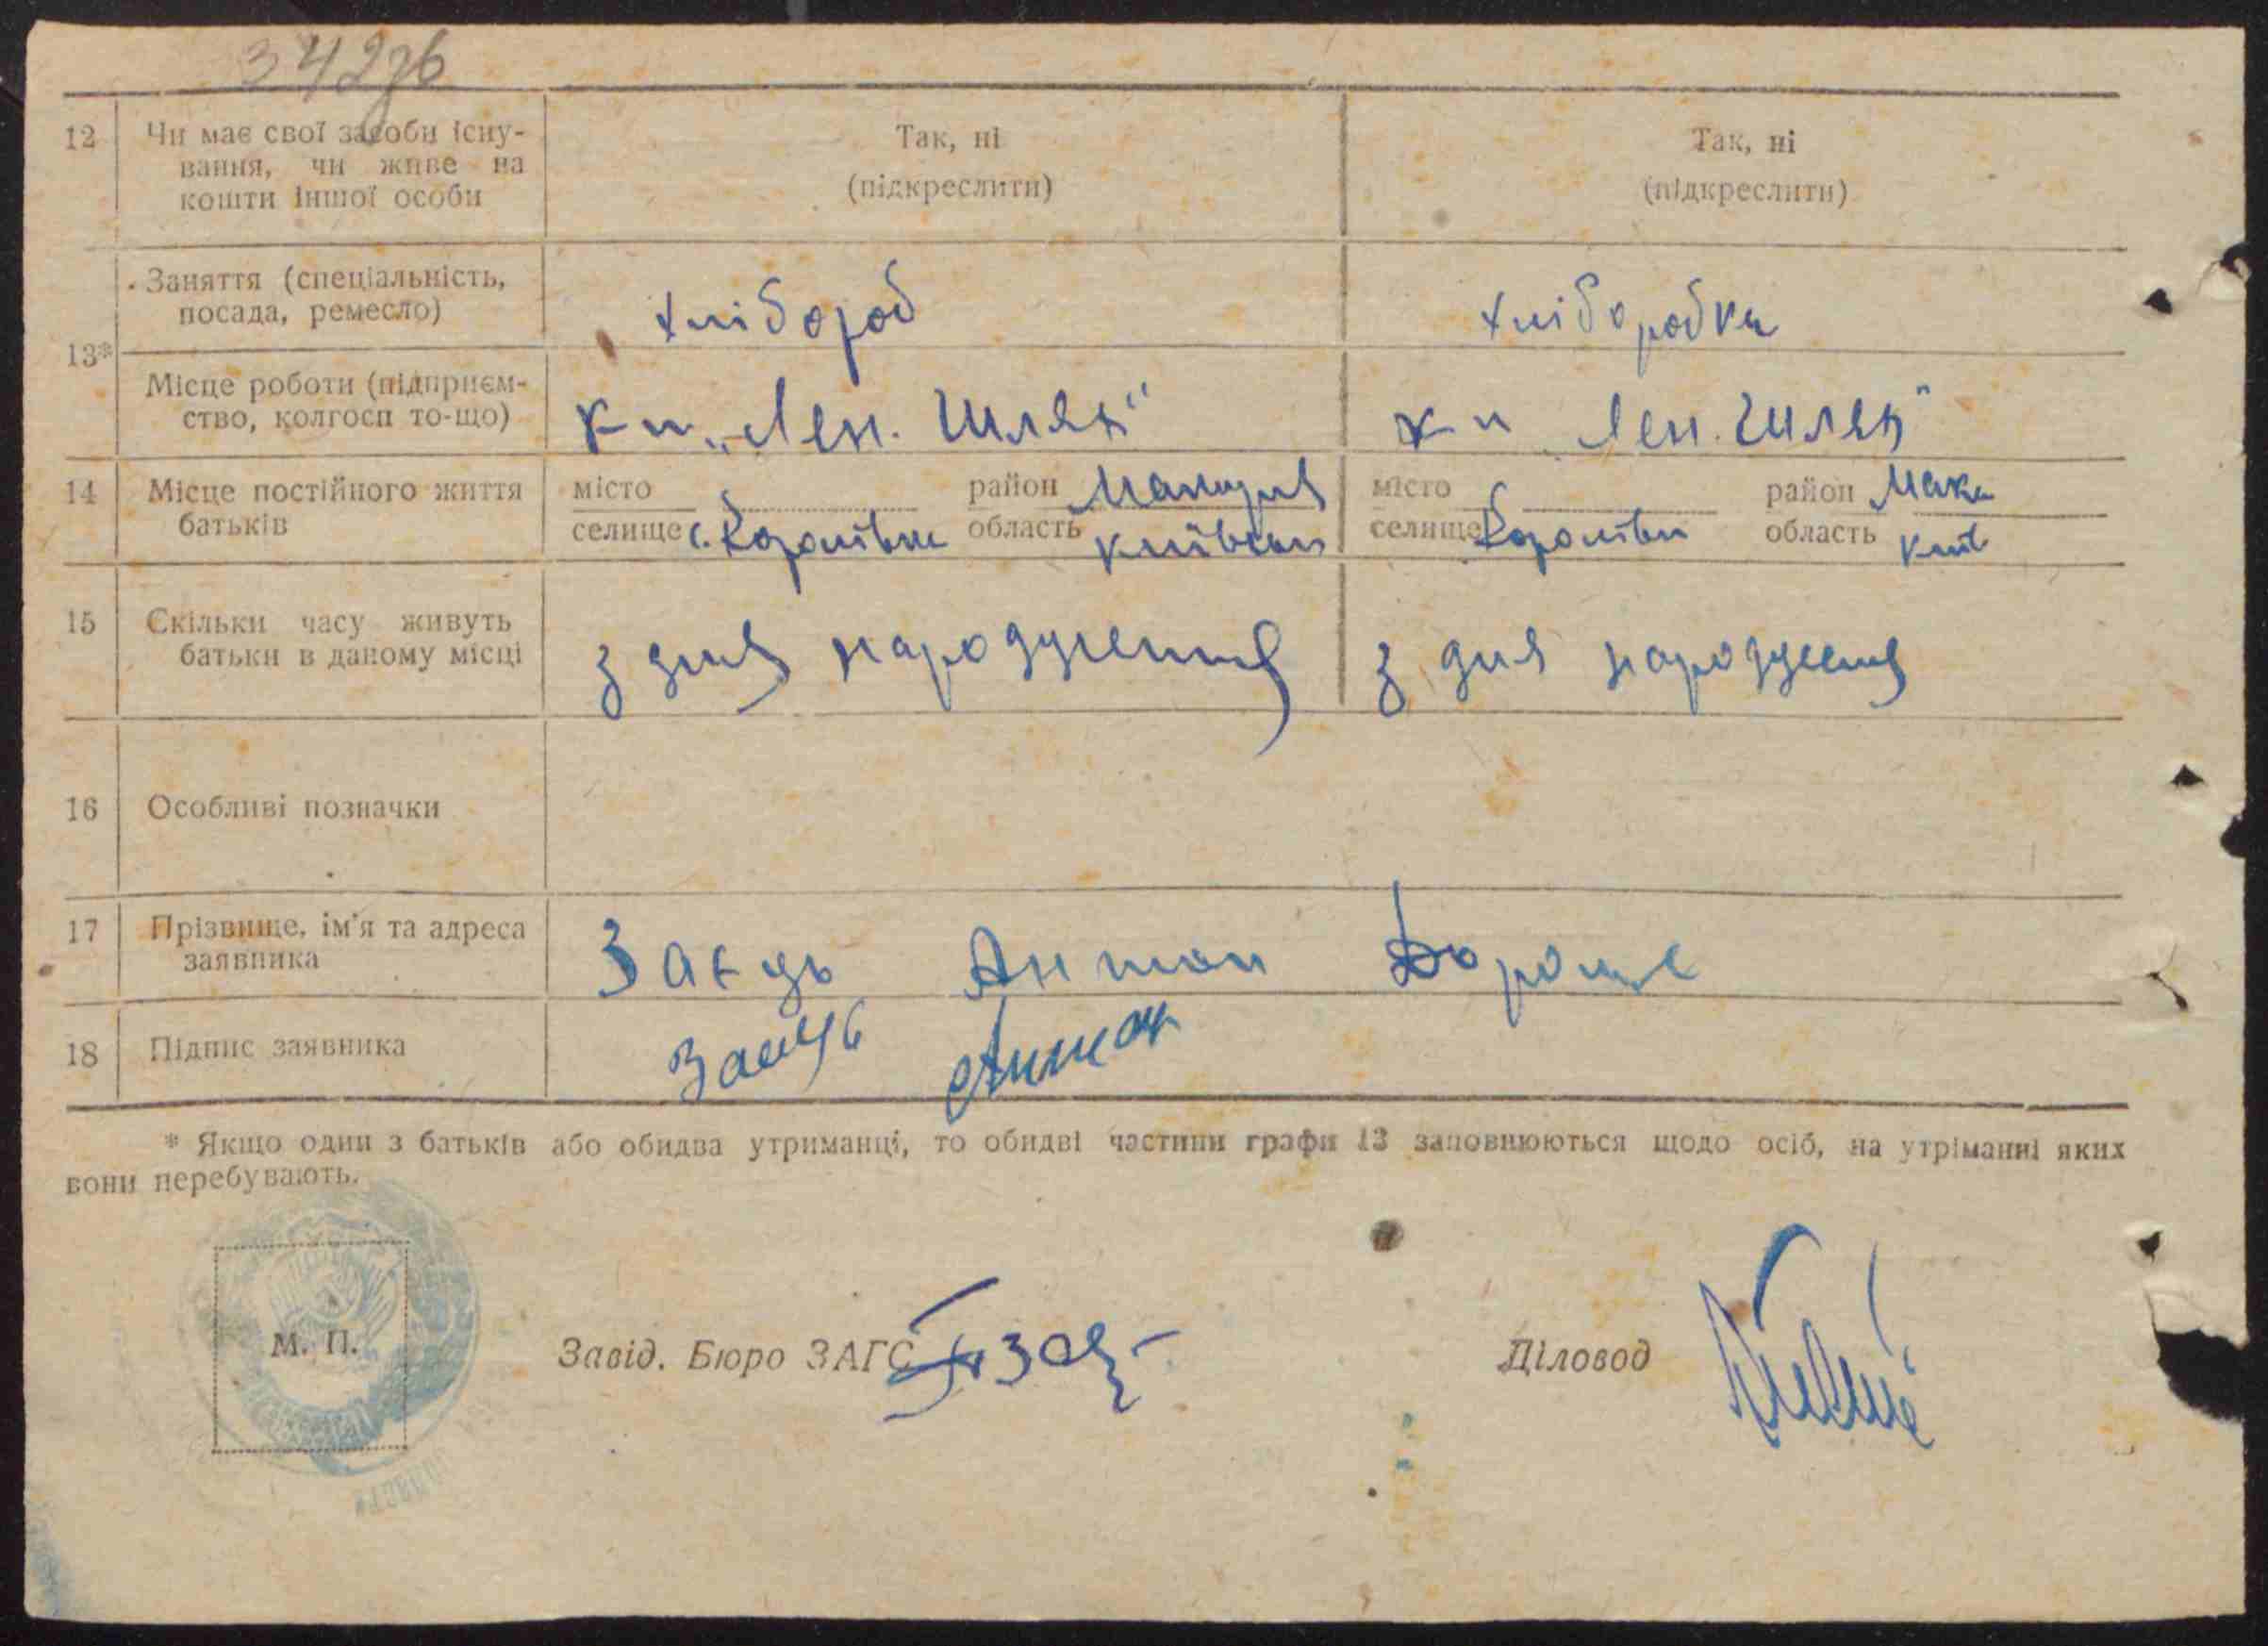 34276
12 Чи має свої засоби існу- Так, ні Так, ні
вання, чи живе на (підкреслити) (підкреслити)
кошти іншої особи
13* Заняття (спеціальність, хлібороб хліборобка
посада, ремесло)
Місце роботи (підприєм- к-п „Лен. Шлях“ к-п Лен. Шлях“
ство, колгосп то-що)
14 Місце постійного життя місто район Макарів місто район Мака
батьків селище с. Королівка область Київська селище Королівка область Київ
15 Скільки часу живуть з дня народження з дня народження
батьки в даному місці
16 Особливі позначки
17 Прізвище, ім'я та адреса Заєць Антон
заявника
18 Підпис заявника Заяць Антон
* Якщо один з батьків або обидва утриманці, то обидві частини графи 13 заповнюються щодо осіб, на утріманні яких
вони перебувають.
М. П. Завід. Бюро ЗАГС Діловод